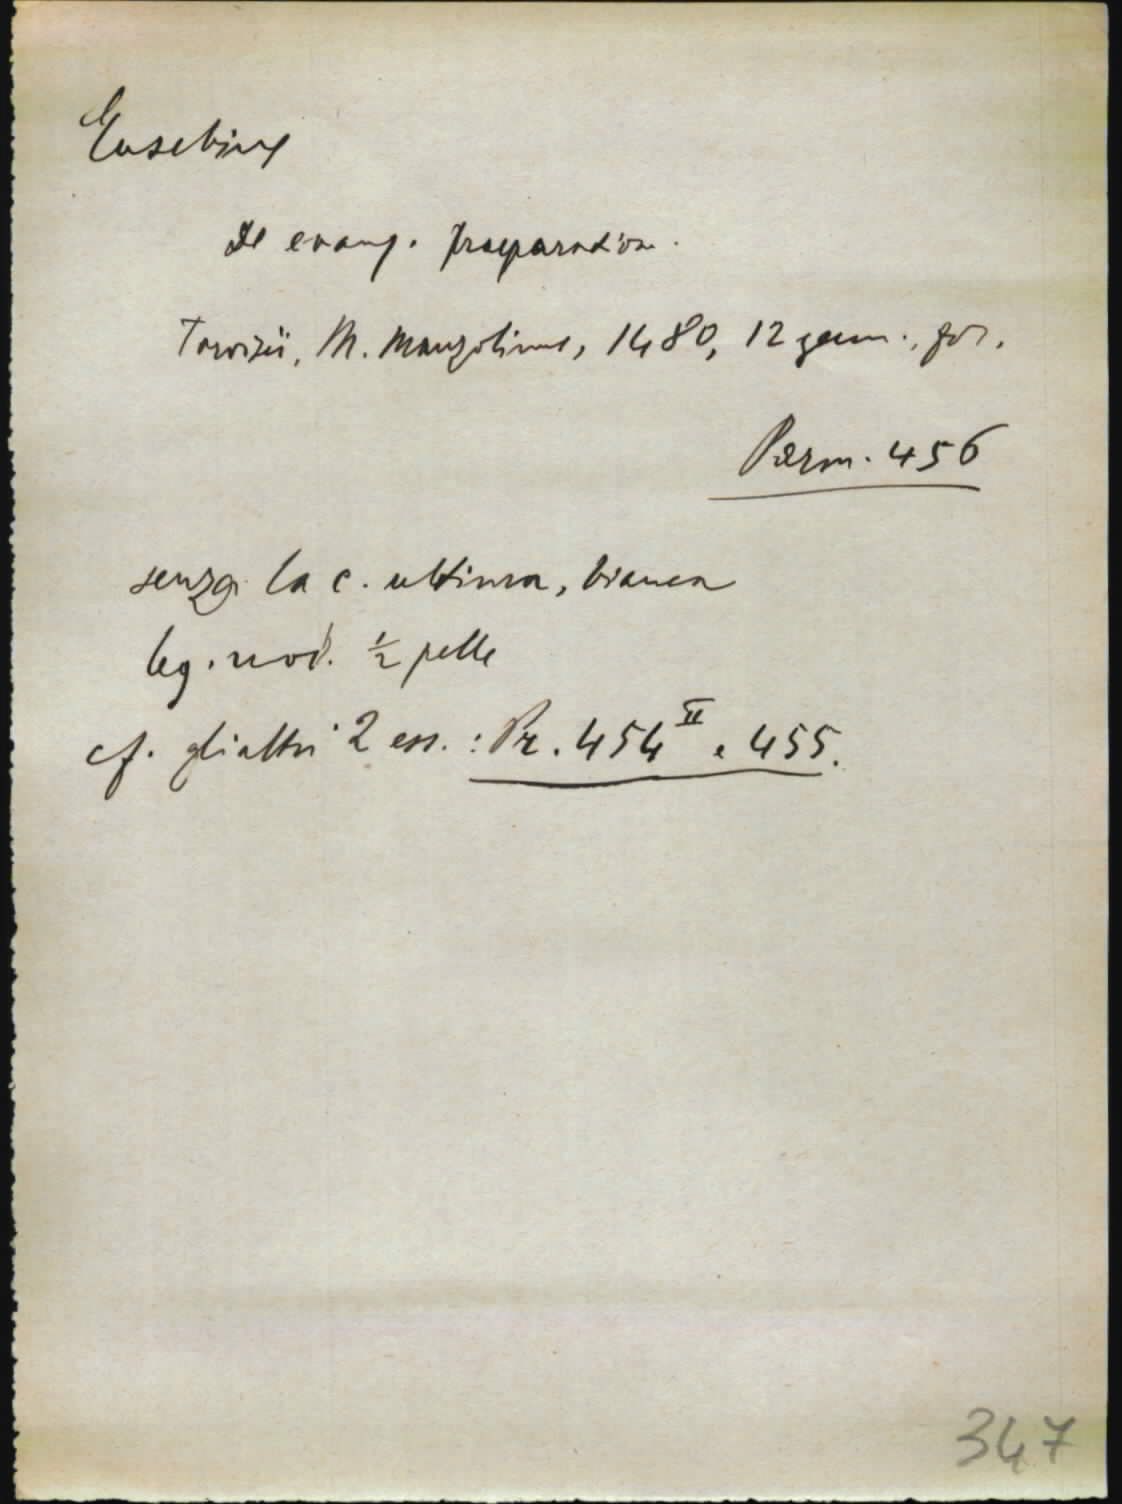 Eusebius
De evang. praeparation.
Tarvisii, M. Manzolinus, 1480, 12 genn., fol.
Parm. 456
senza la c. ultima, bianca
leg. mod. ½ pelle
cf. gli altri 2 es.: Pr. 454 II e 455.
347